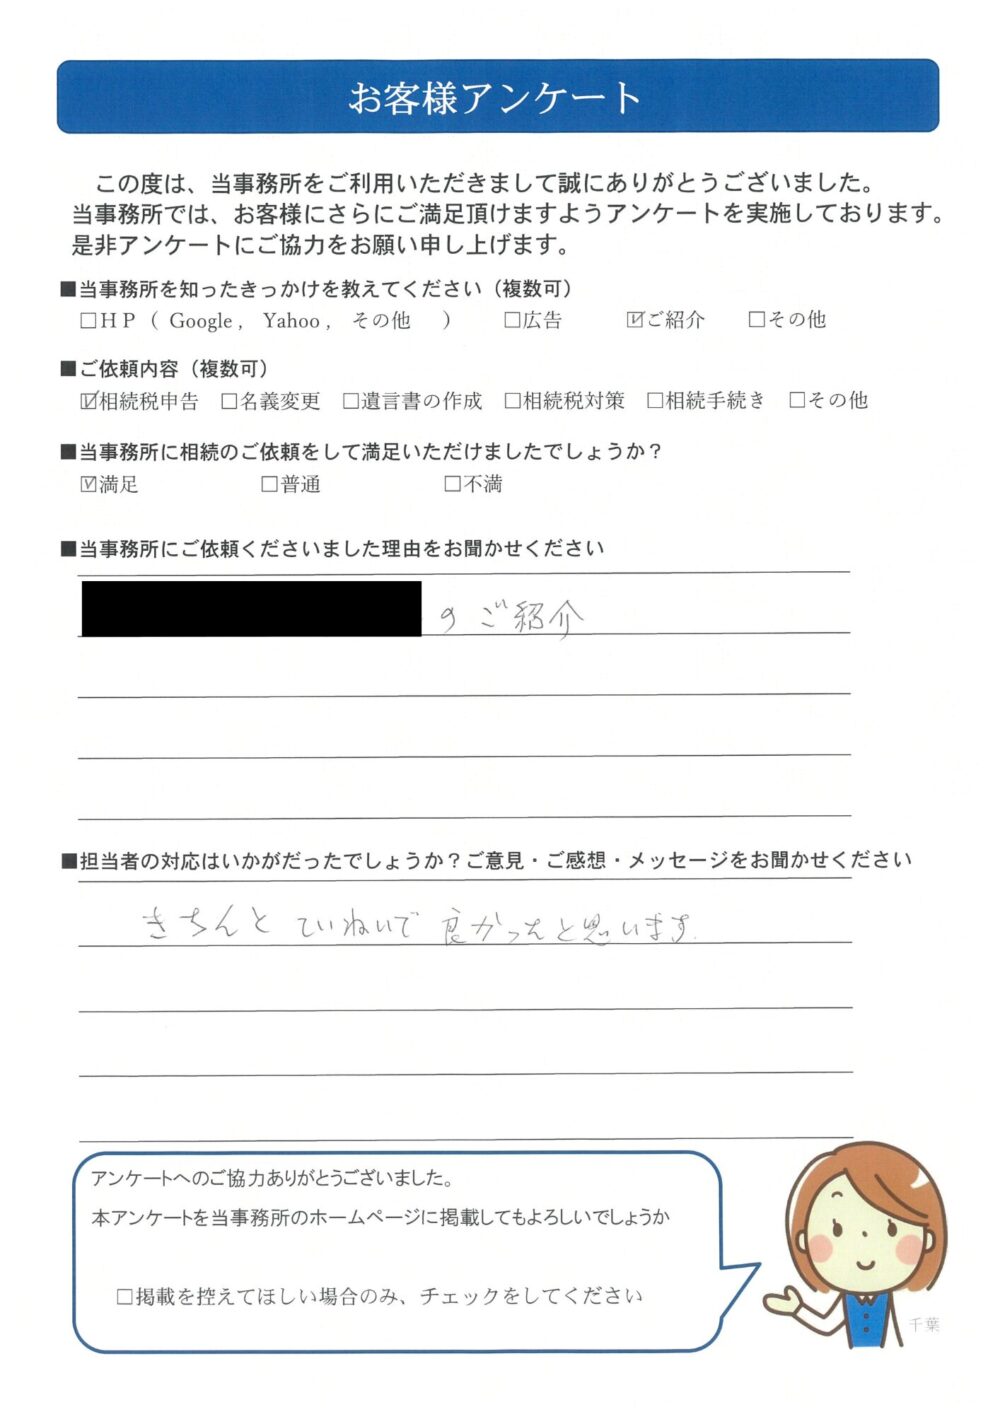 お客様アンケート
この度は、当事務所をご利用いただきまして誠にありがとうございました。
当事務所では、お客様にさらにご満足頂けますようアンケートを実施しております。
是非アンケートにご協力をお願い申し上げます。
■当事務所を知ったきっかけを教えてください（複数可）
□ＨＰ（ Google , Yahoo , その他 ） □広告 ☑ご紹介 □その他
■ご依頼内容（複数可）
☑相続税申告 □名義変更 □遺言書の作成 □相続税対策 □相続手続き □その他
■当事務所に相続のご依頼をして満足いただけましたでしょうか？
☑満足 □普通 □不満
■当事務所にご依頼くださいました理由をお聞かせください
のご紹介
■担当者の対応はいかがだったでしょうか？ご意見・ご感想・メッセージをお聞かせください
きちんと ていねいで 良かったと思います.
アンケートへのご協力ありがとうございました。
本アンケートを当事務所のホームページに掲載してもよろしいでしょうか
□掲載を控えてほしい場合のみ、チェックをしてください
千葉